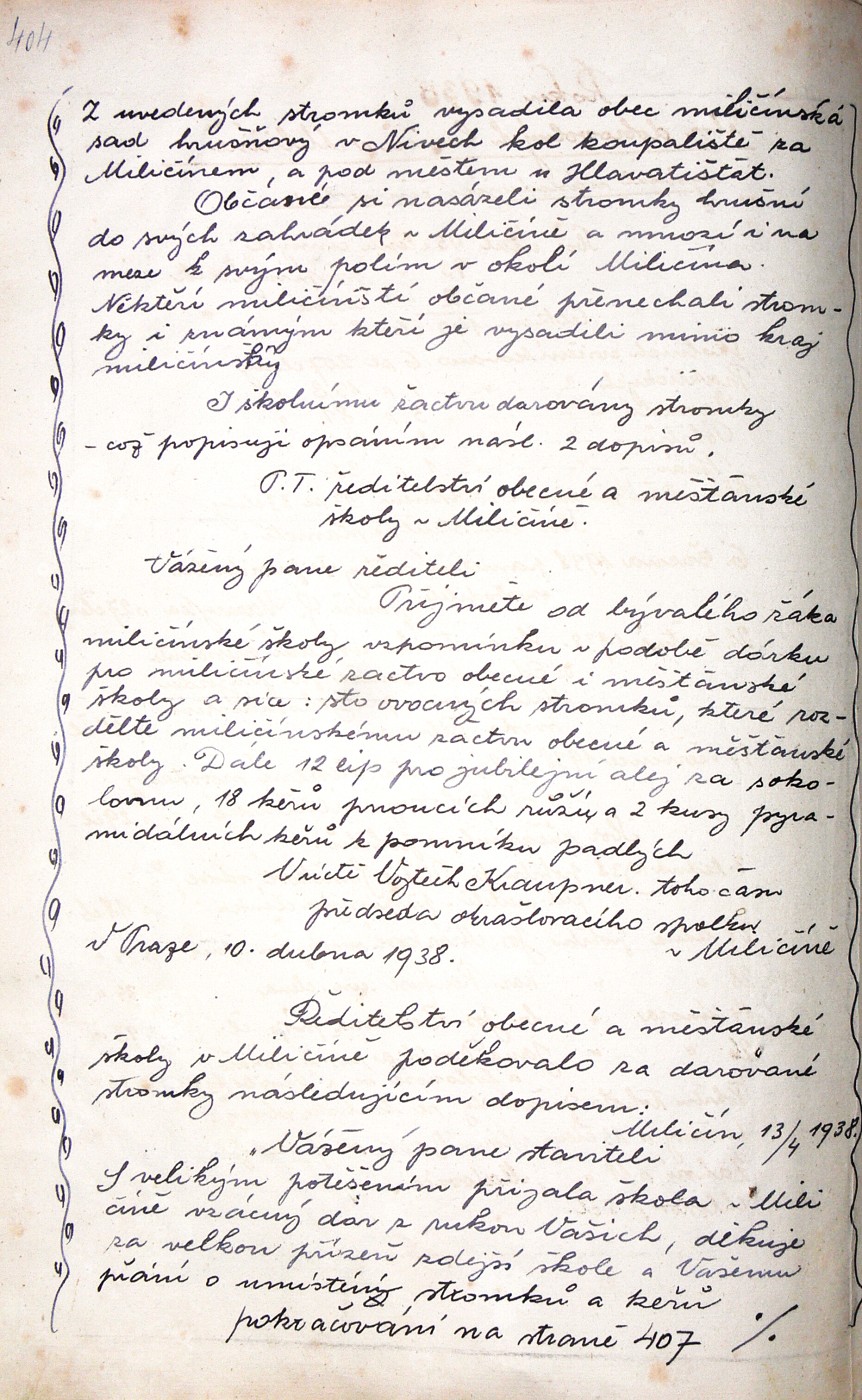 404
Z uvedených stromků vysadila obec miličínská
sad hrušňový v Nivech kol koupaliště za
Miličínem, a pod městem u Hlavatištat.
Občáné si nasázeli stromky hrušní
do svých zahrádek v Miličíně a mnozí i na
meze k svým polím v okolí Miličína.
Někteří miličínští občané přenechali strom-
ky i známým kteří je vysadili mimo kraj
miličínský
I školnímu žactvu darovány stromky
- což popisuji opsáním násl. 2 dopisů.
P.T. ředitelství obecné a měšťánské
školy v Miličíně.
Vážený pane řediteli
Přijměte od bývalého žáka
miličínské školy vzpomínku v podobě dárku
pro miličínské žactvo obecné i měšťánské
školy a sice: sto ovocných stromků, které roz-
dělte miličínskému žactvu obecné a měšťánské
školy. Dále 12 lip pro jubilejní alej za soko-
lovnu, 18 kěřů pnoucích růžíz a 2 kusy pyra-
midálních kěřů k pomníku padlých
V úctě Vojtěch Kraupner. toho času
předseda okrašlovacího spolku
v Miličíně
V Praze, 10. dubna 1938.
Ředitelství obecné a měšťánské
školy v Miličíně poděkovalo za darované
stromky následujícím dopisem:
Miličín, 13/4 1938.
"Vážený pane staviteli
S velikým potěšením přijala škola v Mili
číně vzácný dar z rukou Vašich, děkuje
za velkou přízeň zdejší škole a Vašemu
přání o umístěný stromků a kěřů
pokračování na straně 407 %